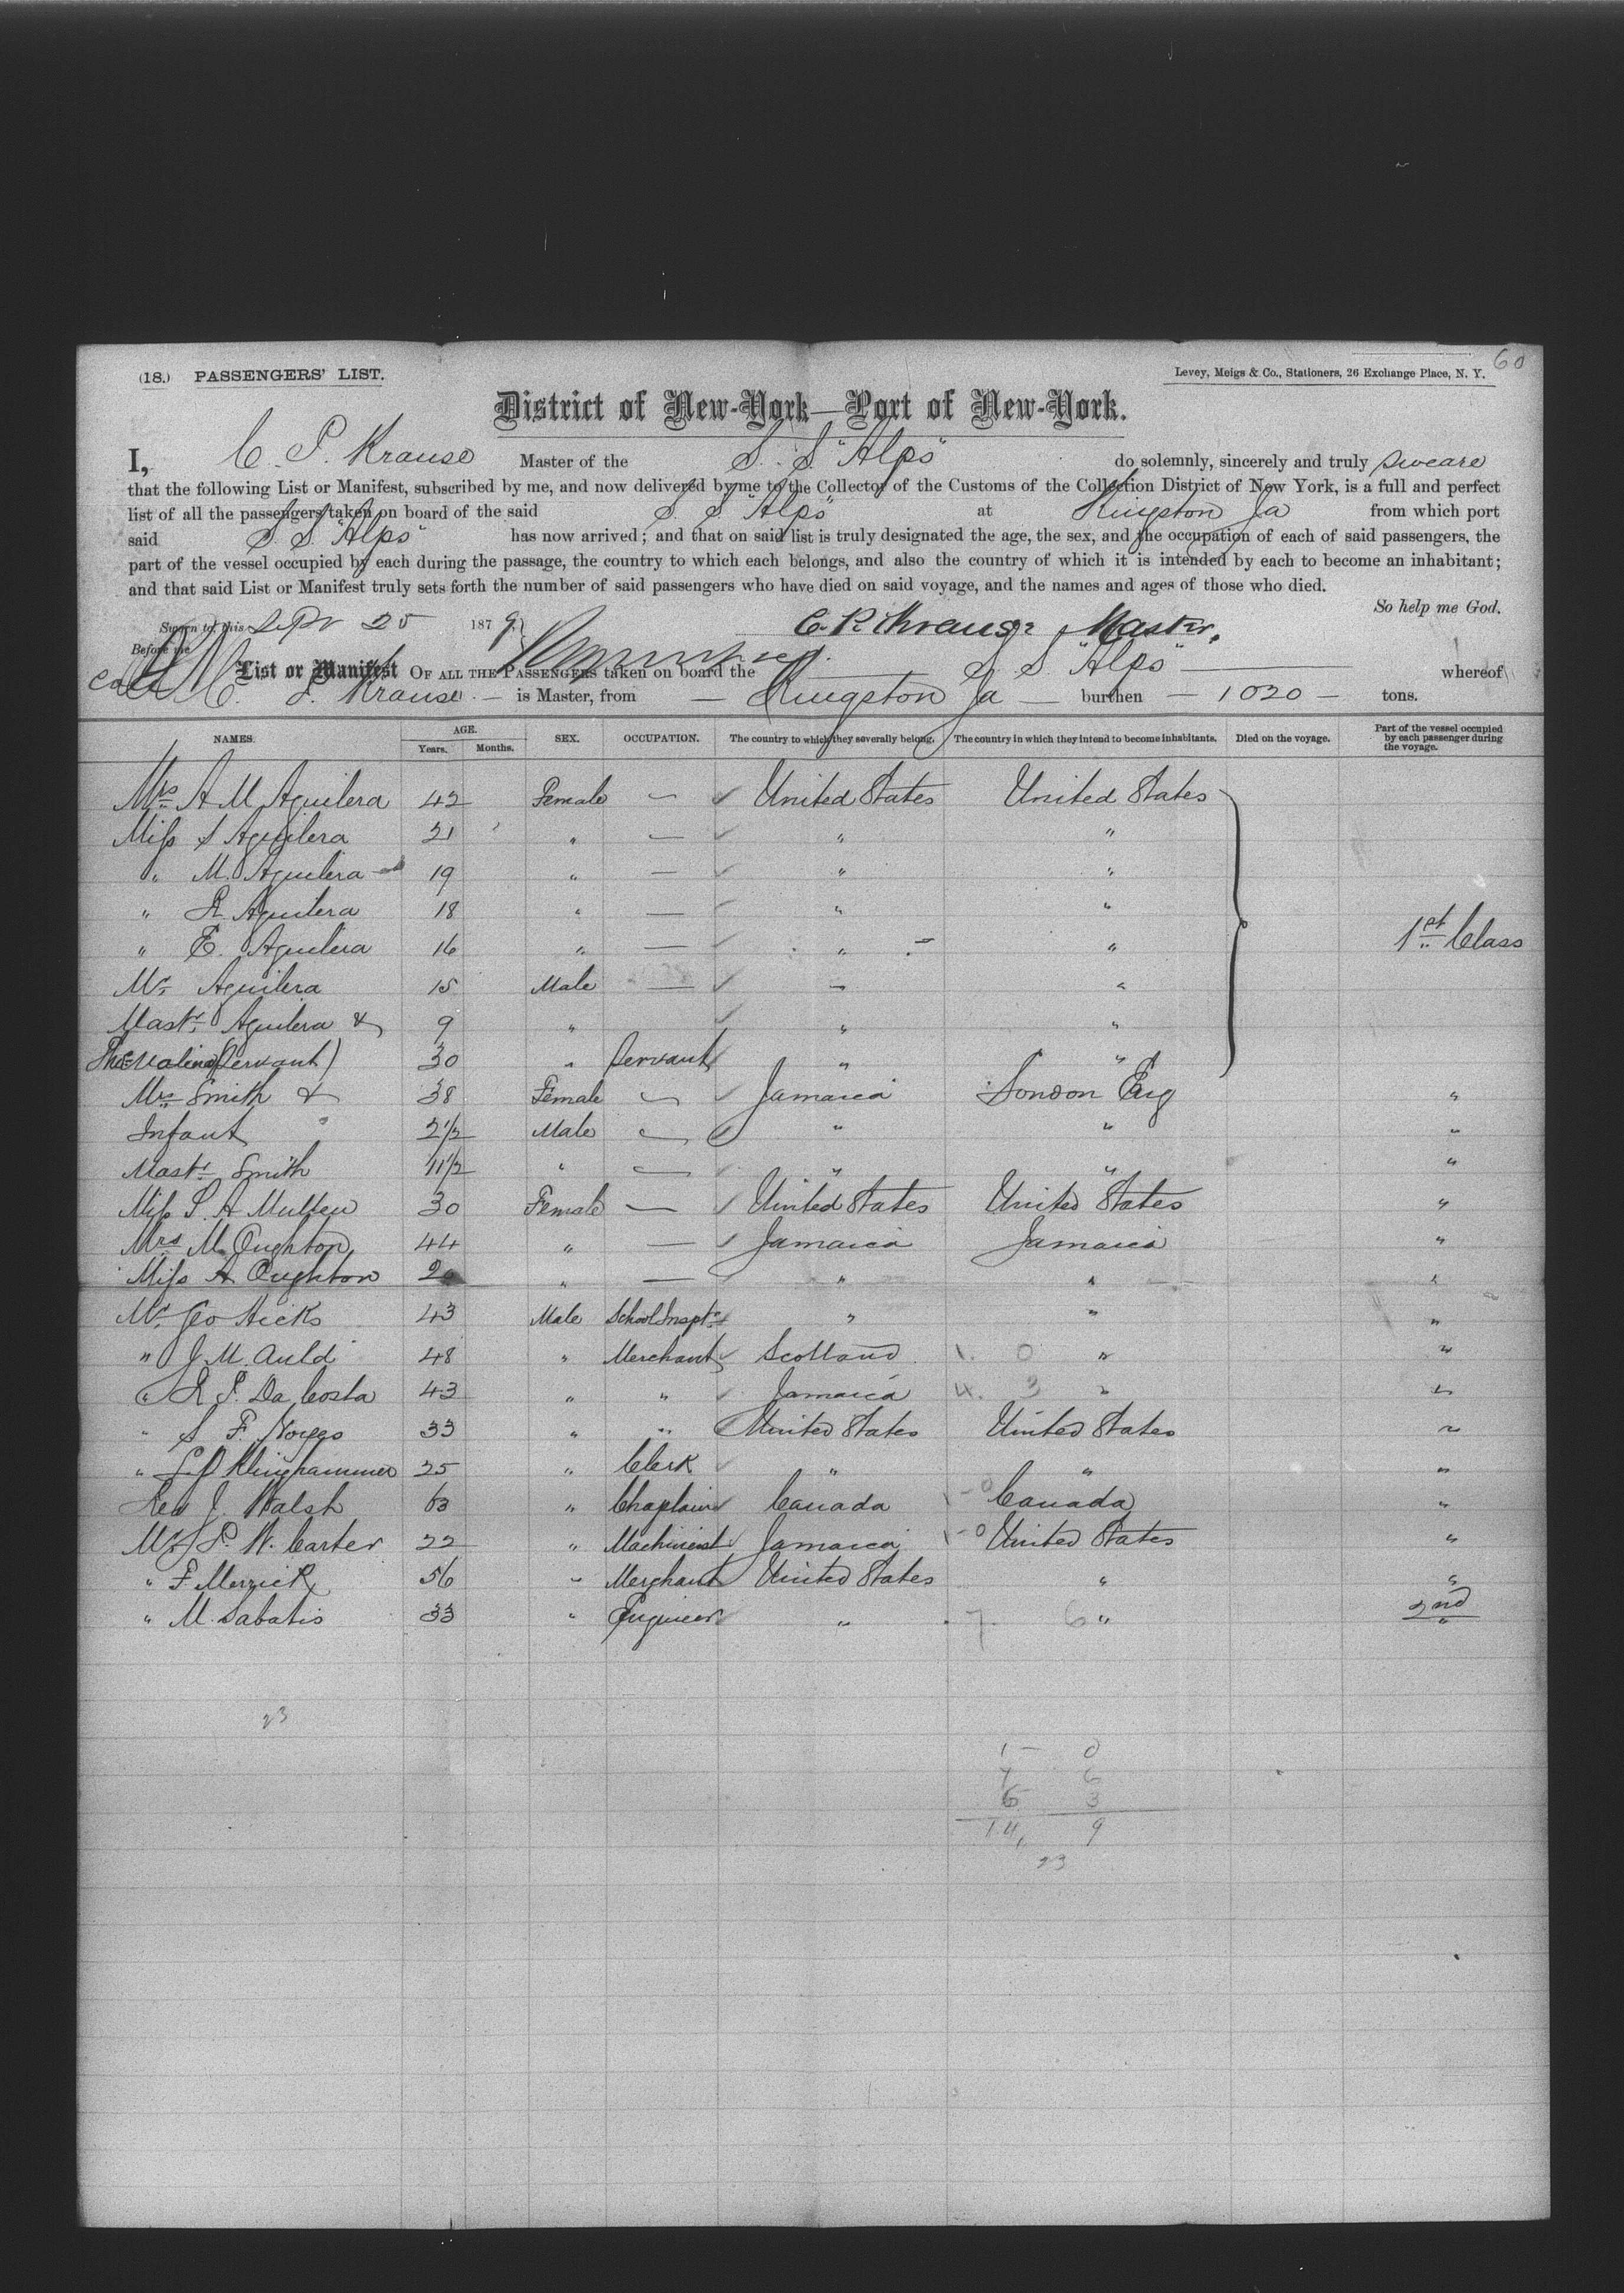 60
(18.) PASSENGERS' LIST. Levey, Meigs & Co., Stationers, 26 Exchange Place, N. Y.
District of New-York—Port of New-York.
I, C. P. Krause Master of the S. S. "Alps" do solemnly, sincerely and truly sweare
that the following List or Manifest, subscribed by me, and now delivered by me to the Collector of the Customs of the Collection District of New York, is a full and perfect
list of all the passengers taken on board of the said S. S. "Alps" at Kingston Ja from which port
said S. S. "Alps" has now arrived; and that on said list is truly designated the age, the sex, and the occupation of each of said passengers, the
part of the vessel occupied by each during the passage, the country to which each belongs, and also the country of which it is intended by each to become an inhabitant;
and that said List or Manifest truly sets forth the number of said passengers who have died on said voyage, and the names and ages of those who died.
So help me God.
Sworn to this Sepr 25 1879 C. P. Krause Master.
Before me
List or Manifest OF ALL THE PASSENGERS taken on board the S. S. "Alps" — whereof
C. P. Krause — is Master, from — Kingston Ja — burthen — 1020 — tons.
NAMES. AGE. Years. Months. SEX. OCCUPATION. The country to which they severally belong. The country in which they intend to become inhabitants. Died on the voyage. Part of the vessel occupied by each passenger during the voyage.
Mrs A M Aguilera 42 Female — United States United States
Miss S Aguilera 21 " — " "
" M. Aguilera 19 " — " "
" R Aguilera 18 " — " "
" E. Aguilera 16 " — " " 1st Class
Mr Aguilera 15 Male — " "
Mastr Aguilera & 9 " " "
(Servant) 30 " Servant " "
Mrs Smith & 38 Female — Jamaica London Eng "
Infant " 2 1/2 Male — " " "
Mastr Smith 11 1/2 " — " " "
Miss S. A Mullen 30 Female — United States United States "
Mrs M. Oughton 44 " — Jamaica Jamaica "
Miss A Oughton " — " " "
Mr Geo Hicks 43 Male School Inspt. " " "
" J. M. Auld 48 " Merchant Scotland 1. 0 " "
" R P. Da Costa 43 " " Jamaica 4. 3 " "
" S F. 33 " " United States United States "
" Klinghammer 25 " Clerk " " "
Rev J. Walsh 63 " Chaplain Canada 1-0 Canada "
Mr P. W. Carter 22 " Machinist Jamaica 1-0 United States "
" F Merrick 56 " Merchant United States " "
" M. Sabatis 33 " Engineer " 7. 6 " 2nd "
23
1 — 0
7 6
6 3
14, 9
23